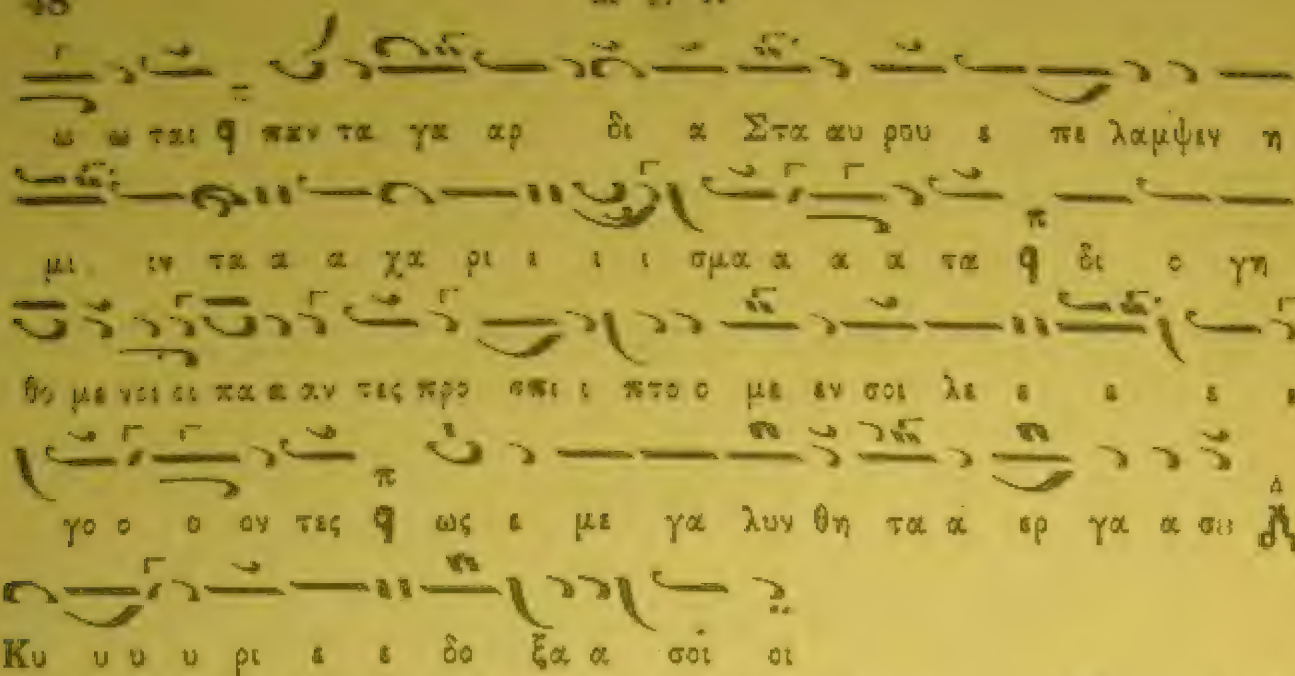 48
ω ω ται π παν τα γα αρ δι α Στα αυ ρου ε πε λαμψεν η
μι ιν τα α α χα ρι ι ι ι σμα α α α τα π δι ο γη
θο με νοι οι πα α αν τες προ σπι ι πτο ο με εν σοι λε ε ε ε ε
γο ο ο ον τες π ως ε με γα λυν θη τα α ερ γα α σȣ Δ
Κυ υ υ υ ρι ε ε δο ξα α σοι οι